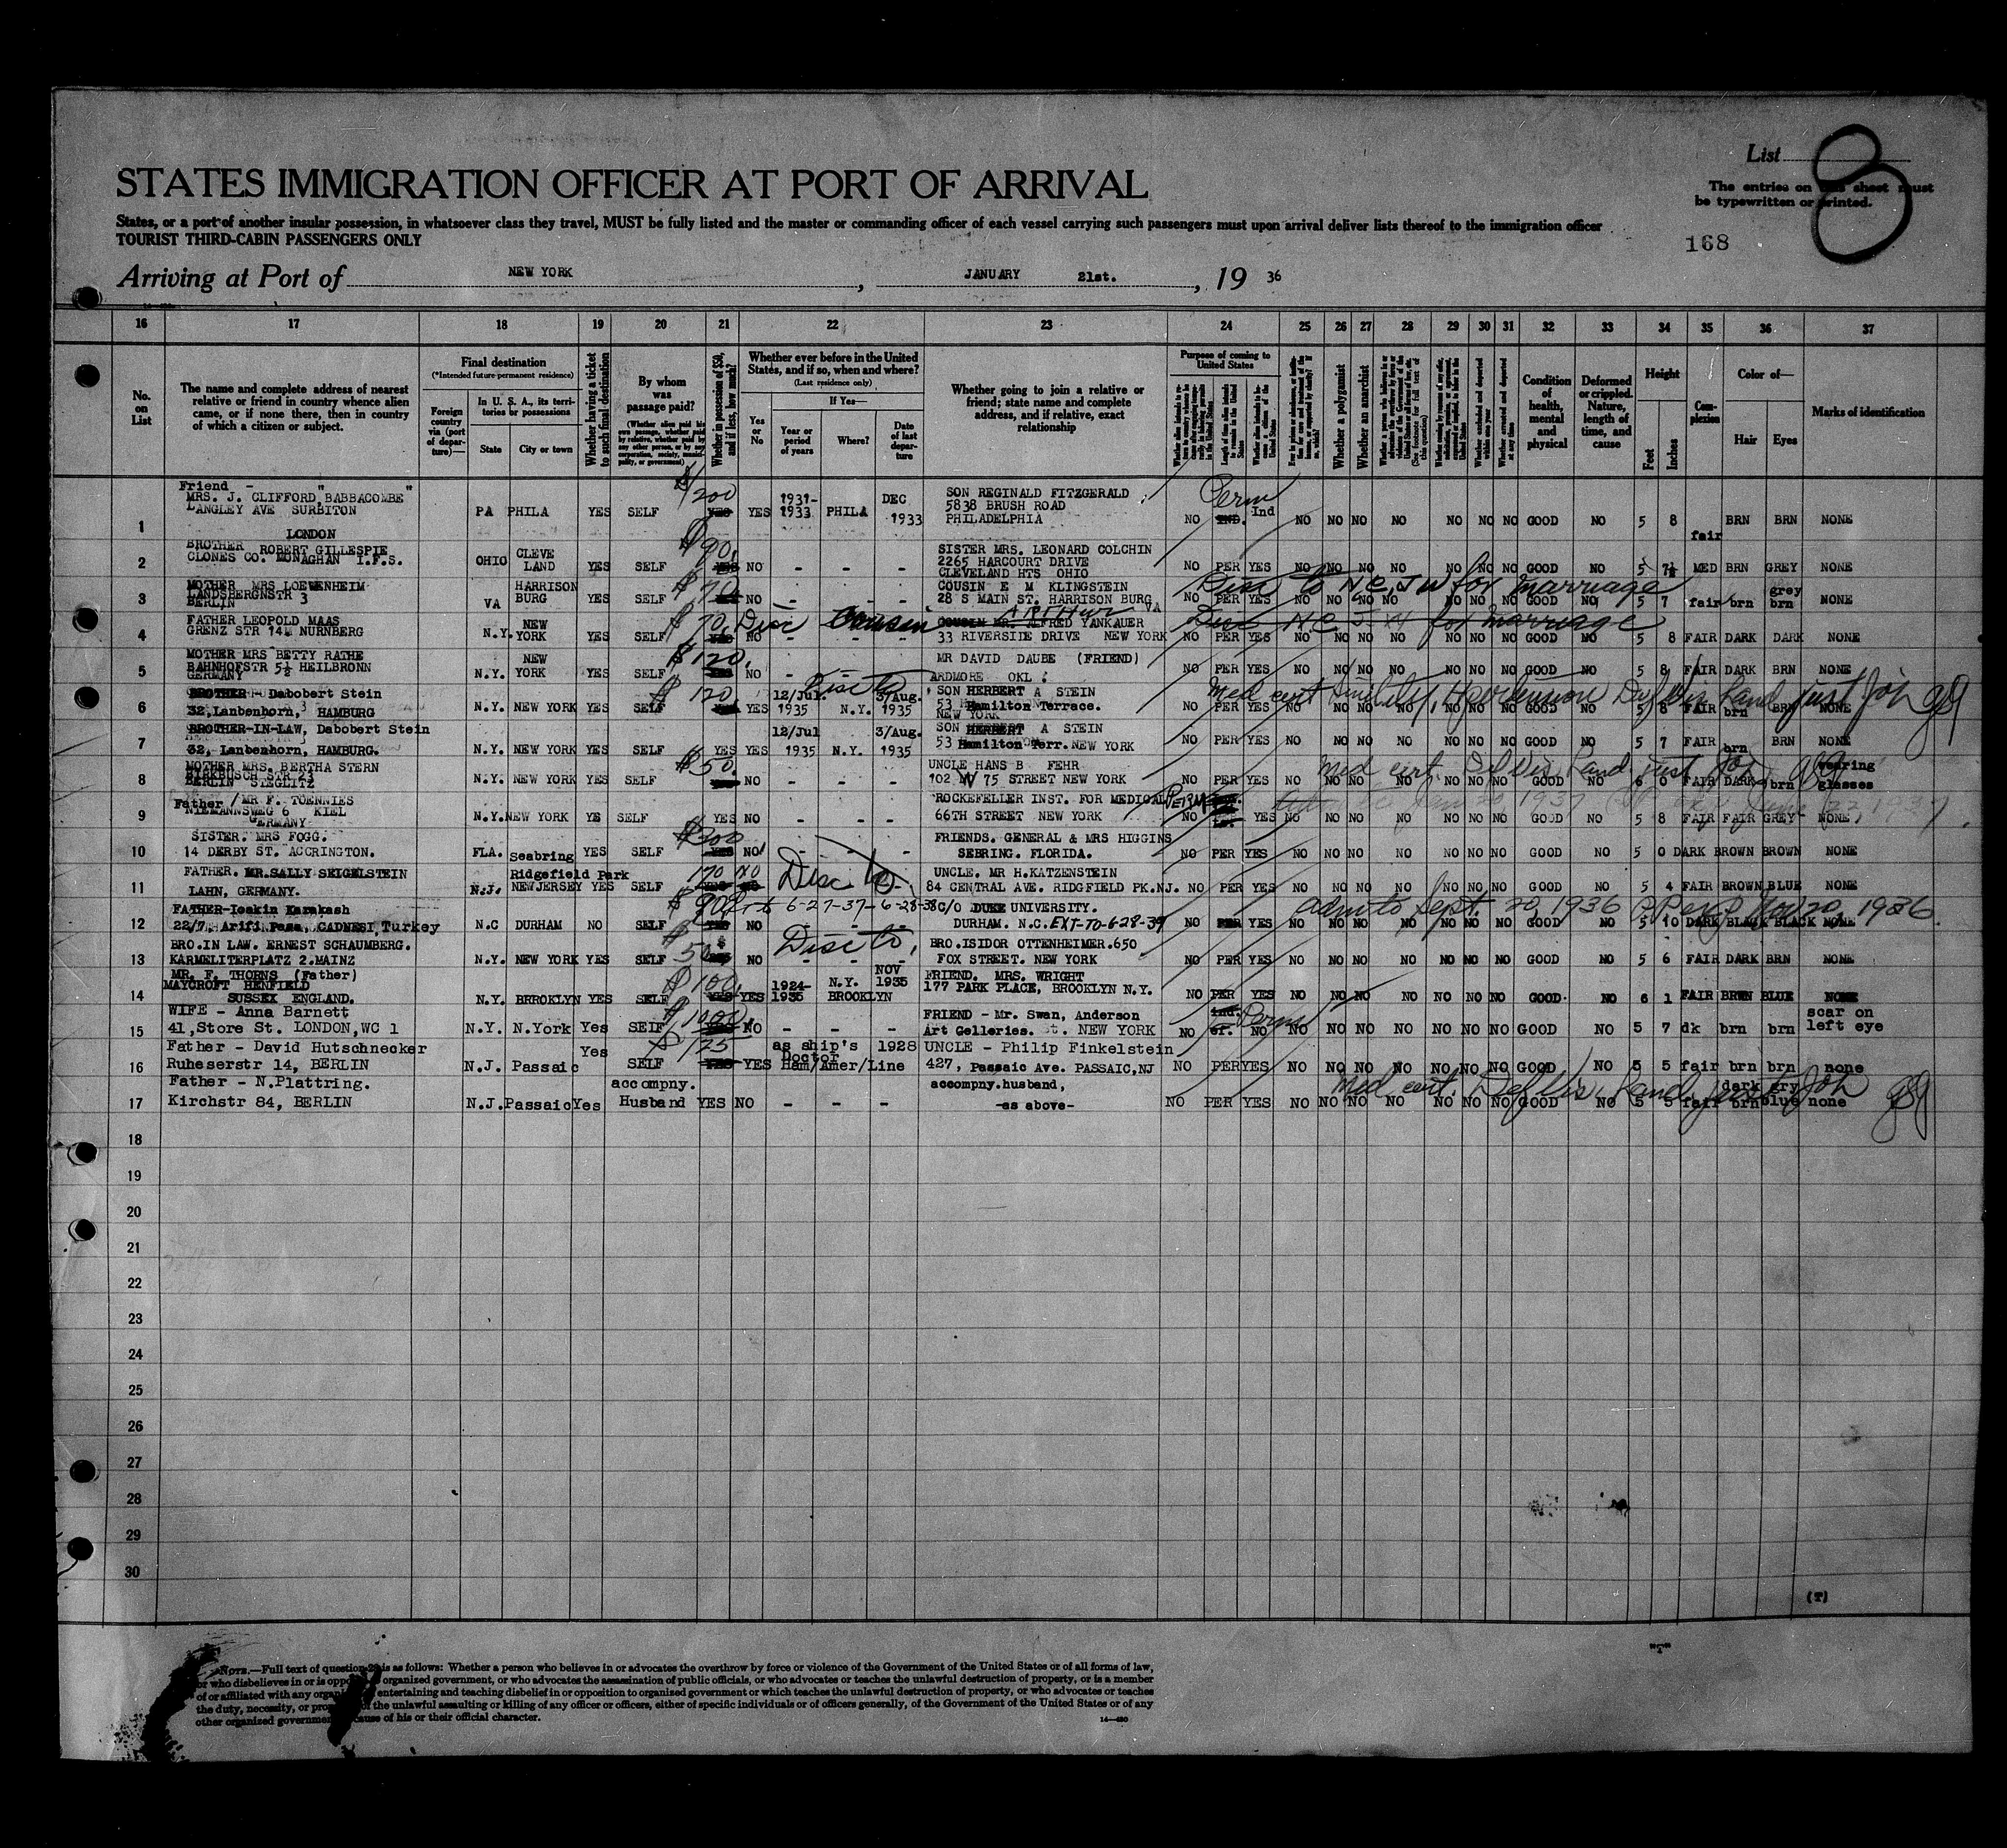 List 8
STATES IMMIGRATION OFFICER AT PORT OF ARRIVAL
The entries on this sheet must
be typewritten or printed.
States, or a port of another insular possession, in whatsoever class they travel, MUST be fully listed and the master or commanding officer of each vessel carrying such passengers must upon arrival deliver lists thereof to the immigration officer
TOURIST THIRD-CABIN PASSENGERS ONLY
168
Arriving at Port of NEW YORK, JANUARY 21st., 19 36
16 17 18 19 20 21 22 23 24 25 26 27 28 29 30 31 32 33 34 35 36 37
No. on List
The name and complete address of nearest relative or friend in country whence alien came, or if none there, then in country of which a citizen or subject.
Final destination
(*Intended future permanent residence)
Foreign country via (port of departure)—
In U. S. A., its territories or possessions
State City or town
Whether having a ticket to such final destination
By whom was passage paid?
Whether in possession of $50, and if less, how much?
Whether ever before in the United States, and if so, when and where?
(Last residence only)
Yes or No
If Yes—
Year or period of years Where? Date of last departure
Whether going to join a relative or friend; state name and complete address, and if relative, exact relationship
Purpose of coming to United States
Whether a polygamist
Whether an anarchist
Condition of health, mental and physical
Deformed or crippled. Nature, length of time, and cause
Height
Feet Inches
Complexion
Color of—
Hair Eyes
Marks of identification
Friend - " "
MRS. J. CLIFFORD BABBACOMBE
LANGLEY AVE SURBITON
LONDON
1 PA PHILA YES SELF $1200 YES YES 1931-1933 PHILA DEC 1933 SON REGINALD FITZGERALD 5838 BRUSH ROAD PHILADELPHIA NO Perm IND. Ind NO NO NO NO NO NO NO GOOD NO 5 8 fair BRN BRN NONE
BROTHER ROBERT GILLESPIE
CLONES CO. MONAGHAN I.F.S.
2 OHIO CLEVE LAND YES SELF $90. YES NO - - - SISTER MRS. LEONARD COLCHIN 2265 HARCOURT DRIVE CLEVELAND HTS OHIO NO PER YES NO NO NO NO NO NO NO GOOD NO 5 7½ MED BRN GREY NONE
MOTHER MRS LOEWENHEIM
LANDSBERGNSTR 3
BERLIN
3 VA HARRISON BURG YES SELF $70. NO - - - COUSIN E M KLINGSTEIN 28 S MAIN ST. HARRISON BURG VA NO PER YES NO NO NO NO NO NO NO GOOD NO 5 7 fair brn grey brn NONE
for marriage
FATHER LEOPOLD MAAS
GRENZ STR 14 NURNBERG
4 N.Y. NEW YORK YES SELF $70. YES NO Disc Cousin Arthur COUSIN MR. ALFRED YANKAUER 33 RIVERSIDE DRIVE NEW YORK NO PER YES NO NO NO NO NO NO NO GOOD NO 5 8 FAIR DARK DARK NONE
for marriage
MOTHER MRS BETTY RATHE
BAHNHOFSTR 5½ HEILBRONN
GERMANY
5 N.Y. NEW YORK YES SELF $120. YES NO - - - MR DAVID DAUBE (FRIEND) ARDMORE OKL. NO PER YES NO NO NO NO NO NO NO GOOD NO 5 8 FAIR DARK BRN NONE
BROTHER - Dabobert Stein
32, Lanbenhorn, HAMBURG
6 N.Y. NEW YORK YES SELF $120. YES YES 12/Jul 1935 N.Y. 3/Aug. 1935 Disc to SON HERBERT A STEIN 53 Hamilton Terrace. NEW YORK NO PER YES NO NO NO NO NO NO NO GOOD NO 5 8 FAIR brn BRN NONE
BROTHER-IN-LAW, Dabobert Stein
32, Lanbenhorn, HAMBURG.
7 N.Y. NEW YORK YES SELF YES YES 12/Jul 1935 N.Y. 3/Aug. 1935 SON HERBERT A STEIN 53 Hamilton Terr. NEW YORK NO PER YES NO NO NO NO NO NO NO GOOD NO 5 7 FAIR brn BRN NONE
MOTHER MRS. BERTHA STERN
BIRKBUSCH STR 23
BERLIN STEGLITZ
8 N.Y. NEW YORK YES SELF $50. NO - - - UNCLE HANS B FEHR 102 W 75 STREET NEW YORK NO PER YES NO NO NO NO NO NO NO GOOD NO 6 0 FAIR DARK brn wearing glasses
Father / MR F. TOENNIES
NIEMANNSWEG 6 KIEL
GERMANY
9 N.Y. NEW YORK YE SELF YES NO - - - ROCKEFELLER INST. FOR MEDICAL 66TH STREET NEW YORK PERM NO YES NO NO NO NO NO NO NO GOOD NO 5 8 FAIR FAIR GREY NONE
SISTER. MRS FOGG.
14 DERBY ST. ACCRINGTON.
10 FLA. Seabring YES SELF $300 YES NO - - - FRIENDS. GENERAL & MRS HIGGINS SEBRING. FLORIDA. NO PER YES NO NO NO NO NO NO NO GOOD NO 5 0 DARK BROWN BROWN NONE
FATHER. MR. SALLY SEIGELSTEIN
LAHN, GERMANY.
11 N.J. Ridgefield Park NEWJERSEY YES SELF 170 YES NO Disc to UNCLE. MR H.KATZENSTEIN 84 CENTRAL AVE. RIDGFIELD PK.N.J. NO PER YES NO NO NO NO NO NO NO GOOD NO 5 4 FAIR BROWN BLUE NONE
FATHER-Ioakin Karakash
22/7, Arifi Pasa, CADNESI, Turkey
12 N.C DURHAM NO SELF $90 NO 6-27-37-6-28-38 C/O DUKE UNIVERSITY. DURHAM. N.C. EXT-TO-6-28-39 NO PER YES NO NO NO NO NO NO NO GOOD NO 5 10 DARK BLACK BLACK NONE
Adm to Sept. 20, 1936 Nov 20, 1936
BRO.IN LAW. ERNEST SCHAUMBERG.
KARMELITERPLATZ 2.MAINZ
13 N.Y. NEW YORK YES SELF $50 NO Disc to BRO.ISIDOR OTTENHEIMER.650 FOX STREET. NEW YORK NO PER YES NO NO NO NO NO NO NO GOOD NO 5 6 FAIR DARK BRN NONE
MR. F. THORNS (Father)
MAYCROFT HENFIELD
SUSSEX ENGLAND.
14 N.Y. BRROKLYN YES SELF $100. YES YES 1924-1935 N.Y. BROOKLYN NOV 1935 FRIEND. MRS. WRIGHT 177 PARK PLACE, BROOKLYN N.Y. NO PER YES NO NO NO NO NO NO NO GOOD NO 6 1 FAIR BRWN BLUE NONE
WIFE - Anna Barnett
41, Store St. LONDON, WC 1
15 N.Y. N.York Yes SELF $1000. YES NO - - - FRIEND - Mr. Swan, Anderson Art Gelleries. NEW YORK NO Perm NO NO NO NO NO NO NO NO GOOD NO 5 7 dk brn brn scar on left eye
Father - David Hutschnecker
Ruheserstr 14, BERLIN
16 N.J. Passaic Yes SELF $175 YES YES as ship's Doctor Ham/Amer/Line 1928 UNCLE - Philip Finkelstein 427, Passaic Ave. PASSAIC,NJ NO PER YES NO NO NO NO NO NO NO GOOD NO 5 5 fair brn brn none
Father - N.Plattring.
Kirchstr 84, BERLIN
17 N.J. Passaic Yes accompny. Husband YES NO - - - accompny.husband, -as above- NO PER YES NO NO NO NO NO NO NO GOOD NO 5 5 fair dark brn gry blue none
18
19
20
21
22
23
24
25
26
27
28
29
30
(T)
"T"
NOTE.—Full text of question 28 is as follows: Whether a person who believes in or advocates the overthrow by force or violence of the Government of the United States or of all forms of law,
or who disbelieves in or is opposed organized government, or who advocates the assassination of public officials, or who advocates or teaches the unlawful destruction of property, or is a member
of or affiliated with any organ entertaining and teaching disbelief in or opposition to organized government or which teaches the unlawful destruction of property, or who advocates or teaches
the duty, necessity, or prop of the unlawful assaulting or killing of any officer or officers, either of specific individuals or of officers generally, of the Government of the United States or of any
other organized government because of his or their official character.
14—430